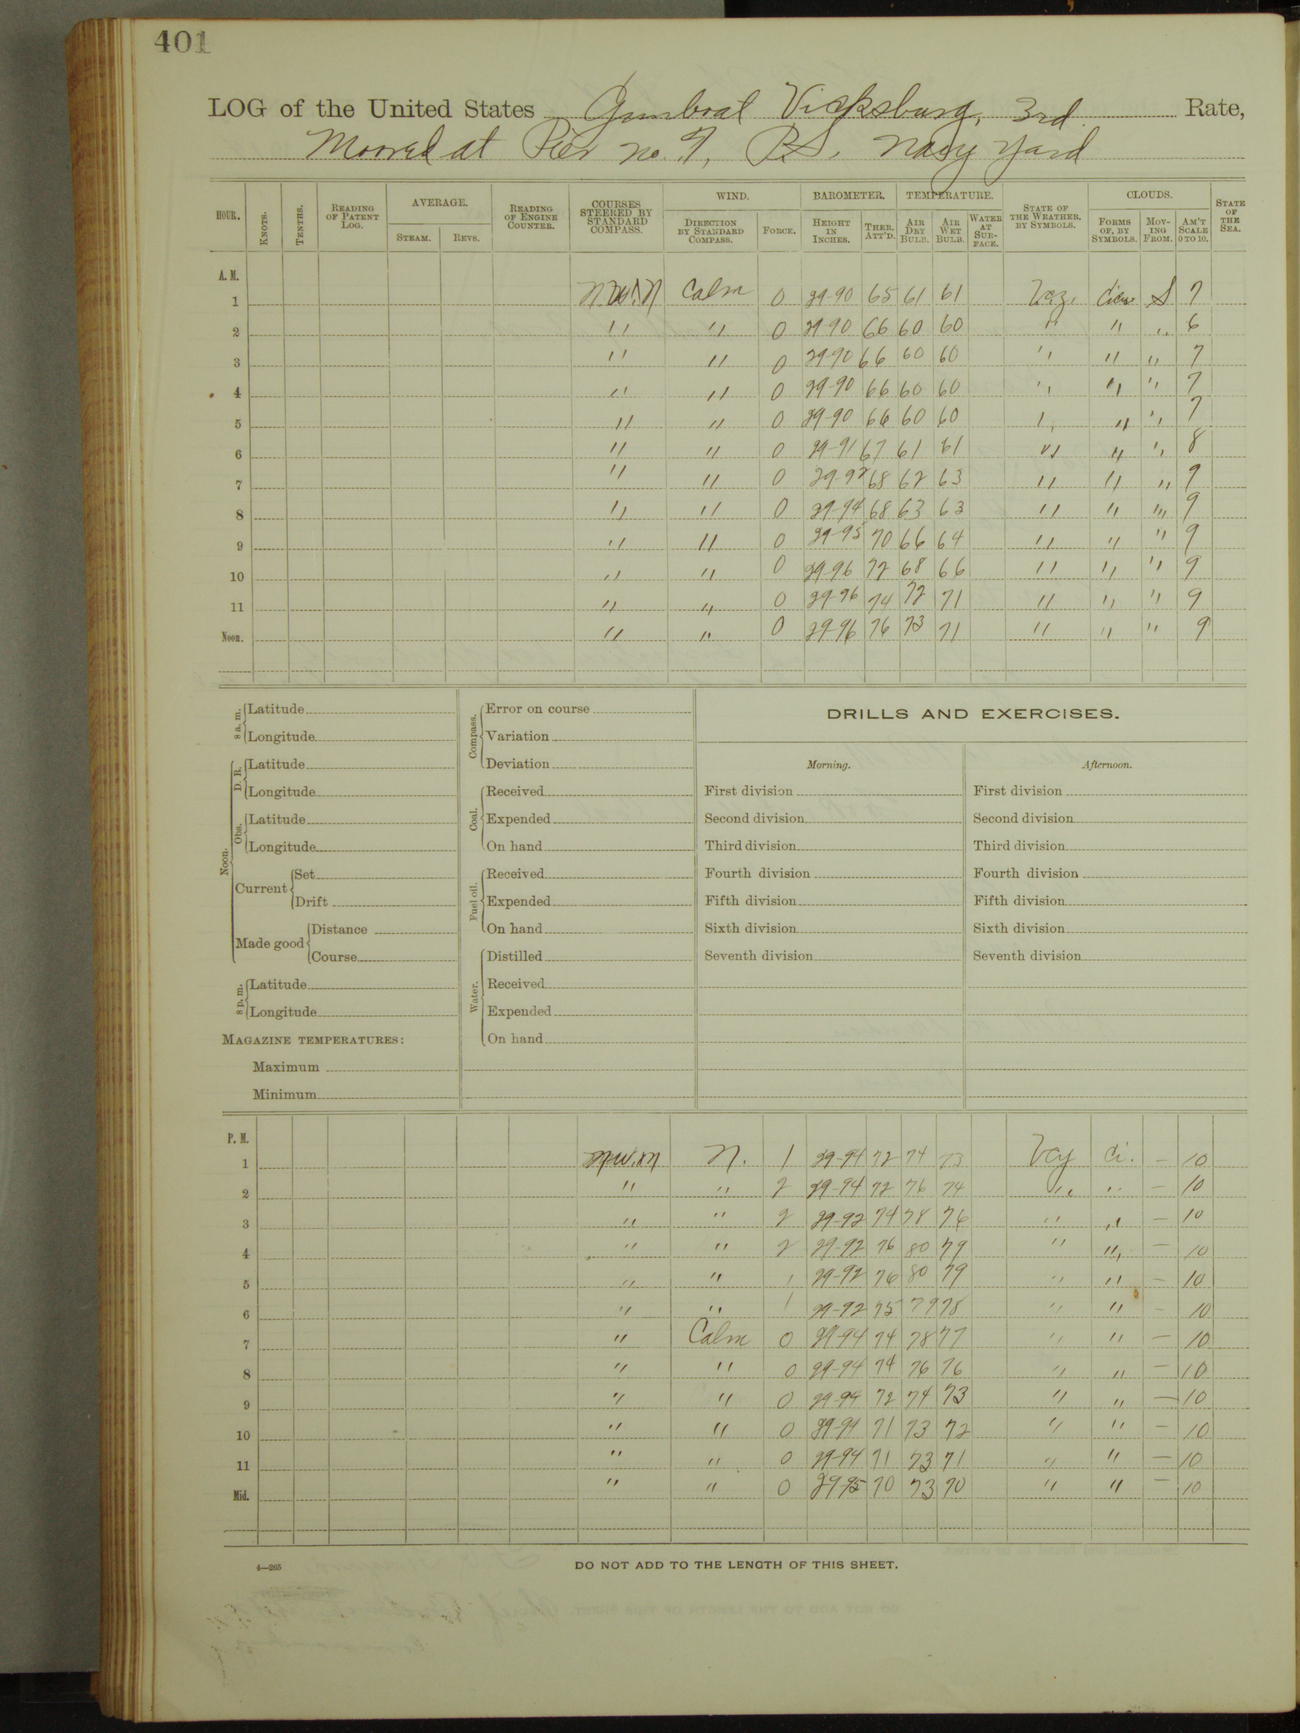 401
LOG of the United States Gunboat Vicksburg, 3rd Rate,
Moored at Pier no. 7, P.S. Navy Yard
HOUR. KNOTS. TENTHS. READING OF PATENT LOG. AVERAGE. STEAM. REVS. READING OF ENGINE COUNTER. COURSES STEERED BY STANDARD COMPASS. WIND. DIRECTION BY STANDARD COMPASS. FORCE. BAROMETER. HEIGHT IN INCHES. THER. ATT'D. TEMPERATURE. AIR DRY BULB. AIR WET BULB. WATER AT SURFACE. STATE OF THE WEATHER, BY SYMBOLS. CLOUDS. FORMS OF, BY SYMBOLS. MOVING FROM. AM'T SCALE 0 TO 10. STATE OF THE SEA.
A. M.
1 Calm 0 29-90 65 61 61 S 7
2 " " 0 29-90 66 60 60 " " " 6
3 " " 0 29-90 66 60 60 " " " 7
4 " " 0 29-90 66 60 60 " " " 7
5 " " 0 29-90 66 60 60 " " " 7
6 " " 0 29-91 67 61 61 " " " 8
7 " " 0 29-92 68 62 63 " " " 9
8 " " 0 29-94 68 63 63 " " " 9
9 " " 0 29-95 70 66 64 " " " 9
10 " " 0 29-96 72 68 66 " " " 9
11 " " 0 29-96 74 72 71 " " " 9
Noon. " " 0 29-96 76 73 71 " " " 9
8 a. m. Latitude
Longitude
Noon. D. R. Latitude
Longitude
Obs. Latitude
Longitude
Current Set
Drift
Made good Distance
Course
8 p. m. Latitude
Longitude
MAGAZINE TEMPERATURES:
Maximum
Minimum
Compass. Error on course
Variation
Deviation
Coal. Received
Expended
On hand
Fuel oil. Received
Expended
On hand
Water. Distilled
Received
Expended
On hand
DRILLS AND EXERCISES.
Morning.
First division
Second division
Third division
Fourth division
Fifth division
Sixth division
Seventh division
Afternoon.
First division
Second division
Third division
Fourth division
Fifth division
Sixth division
Seventh division
P. M.
1 N. 1 29-94 72 74 73 ci. — 10
2 " " 2 29-94 72 76 74 " " — 10
3 " " 2 29-92 74 78 76 " " — 10
4 " " 2 29-92 76 80 79 " " — 10
5 " " 1 29-92 76 80 79 " " — 10
6 " " 1 29-92 75 79 78 " " — 10
7 " Calm 0 29-94 74 78 77 " " — 10
8 " " 0 29-94 74 76 76 " " — 10
9 " " 0 29-94 72 74 73 " " — 10
10 " " 0 29-94 71 73 72 " " — 10
11 " " 0 29-94 71 73 71 " " — 10
Mid. " " 0 29-95 70 73 70 " " — 10
4—265
DO NOT ADD TO THE LENGTH OF THIS SHEET.